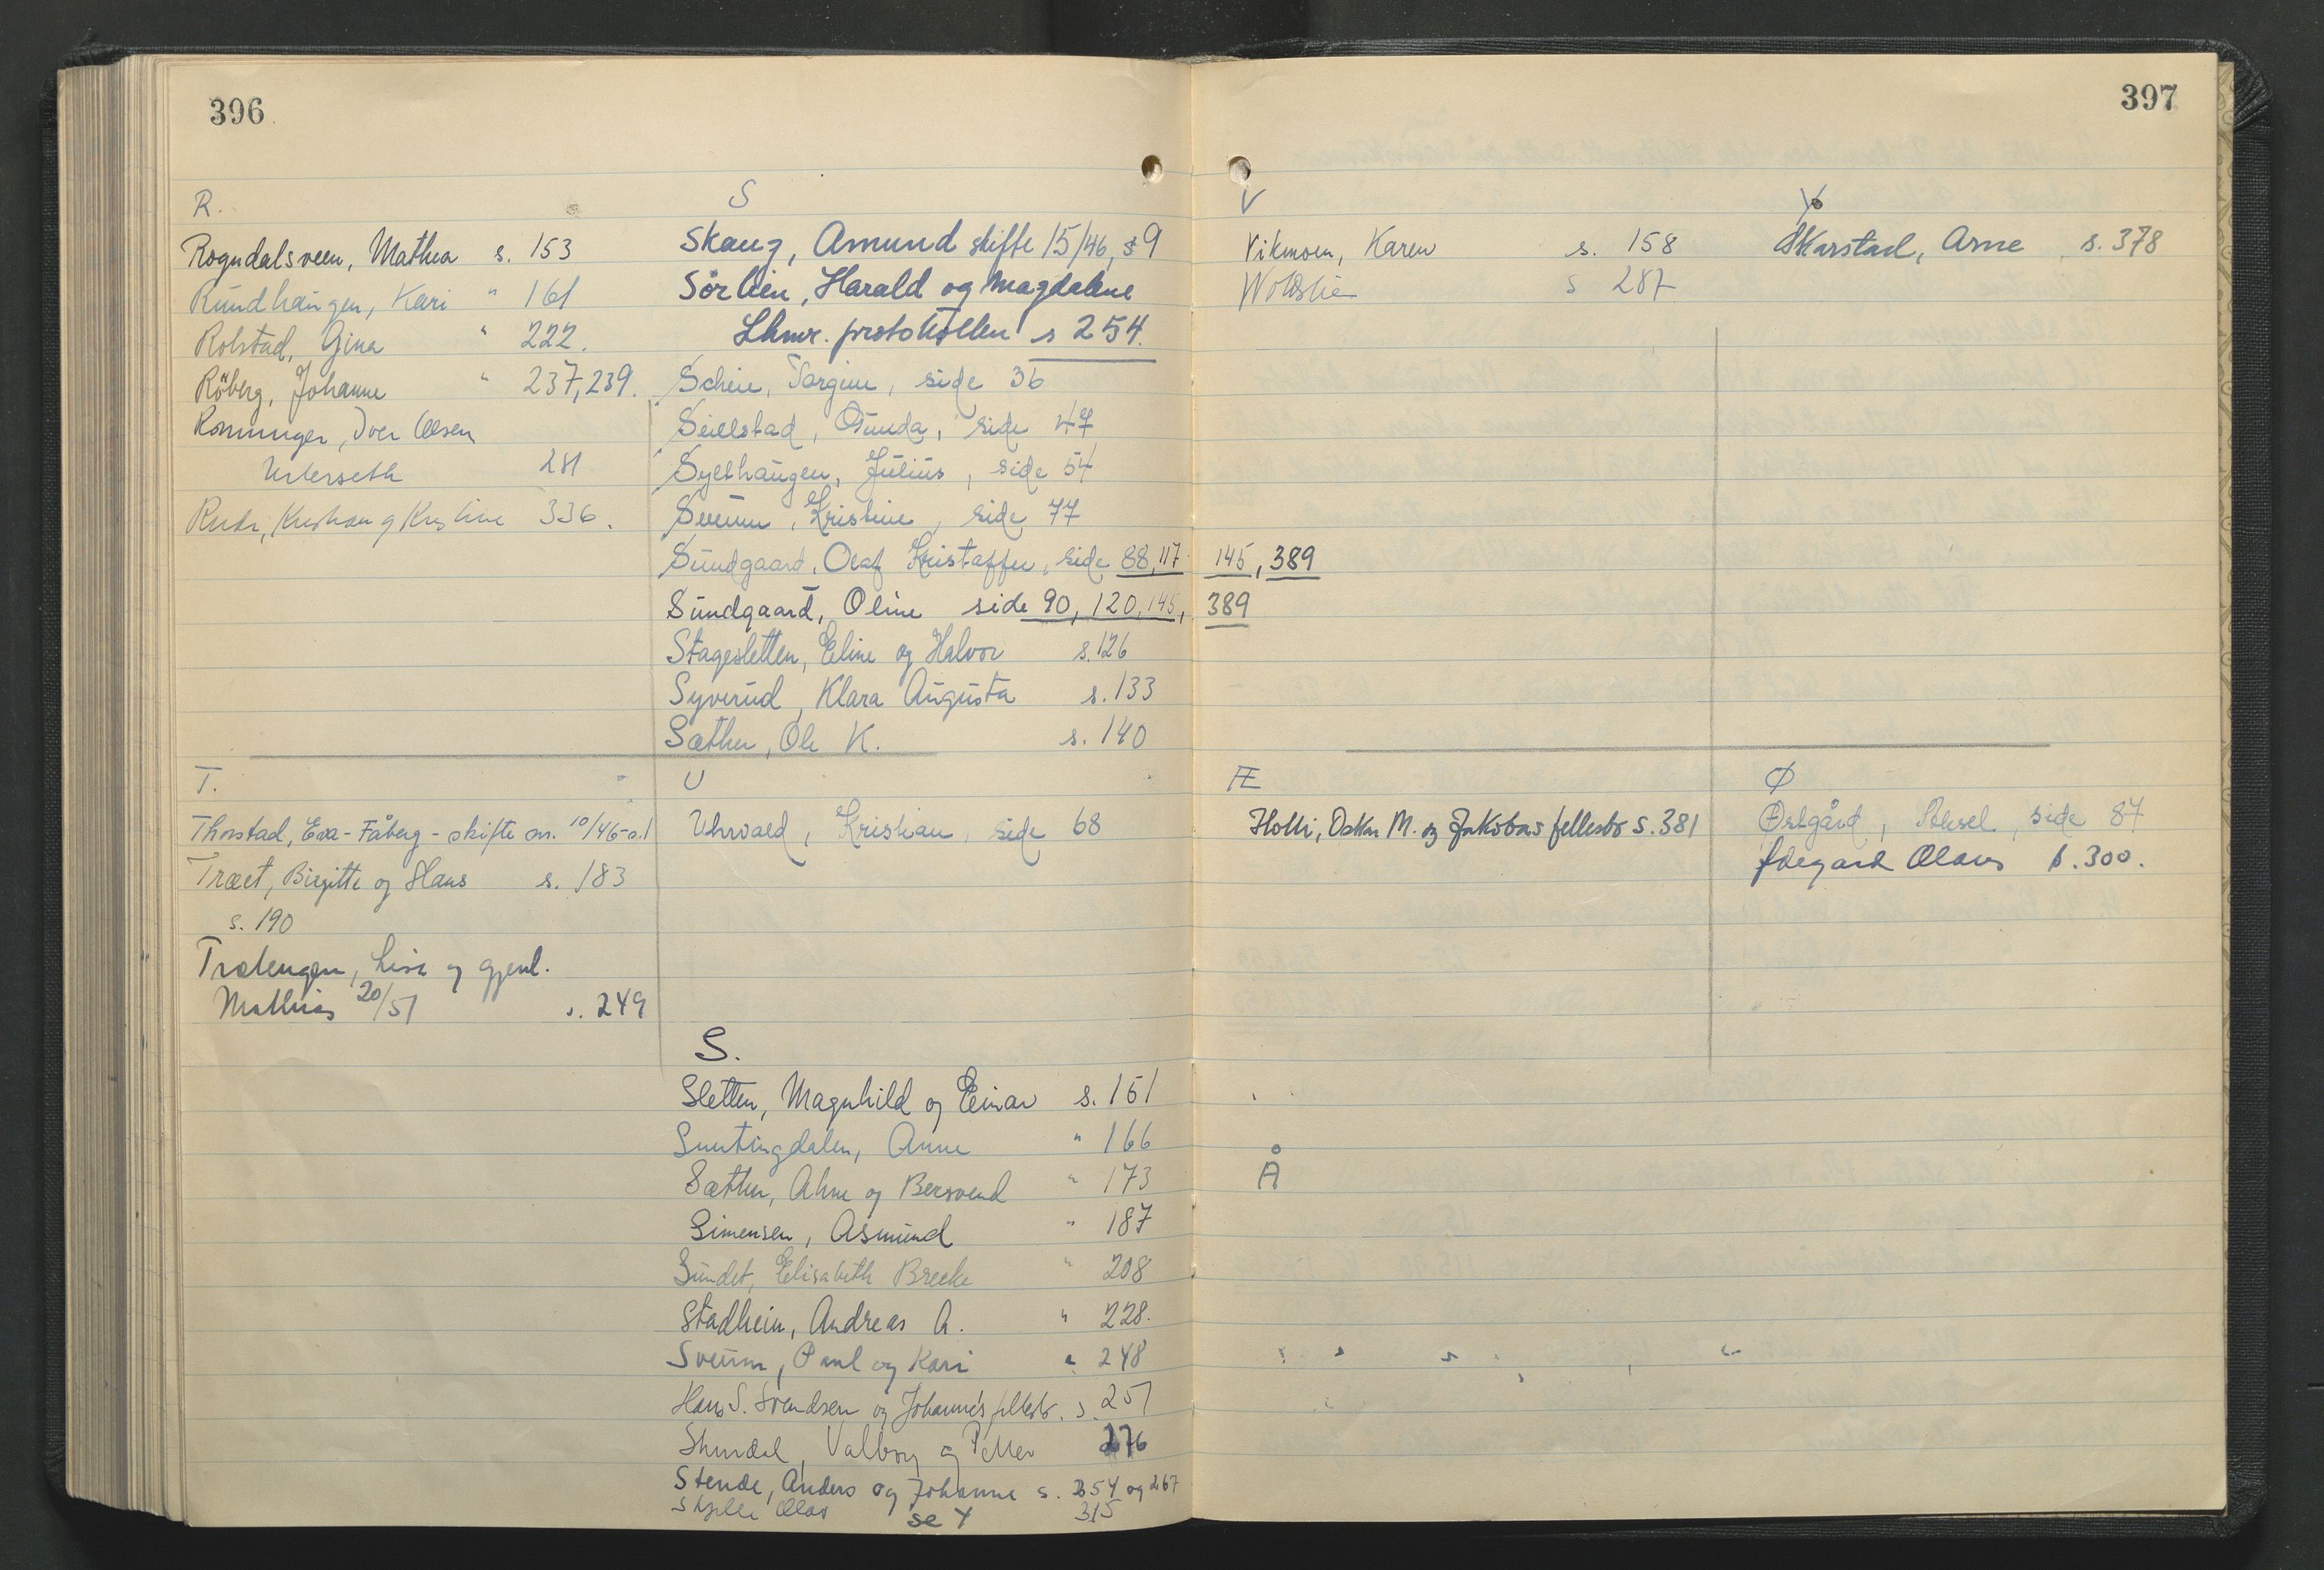 396
R.
Rogndalsveen, Mathea s. 153
Rundhaugen, Kari " 161
Rolstad, Gina " 222.
Röberg, Johanne " 237, 239.
Ronninger, Iver Olsen
281
Rudi, Kristian og Kristine 336.
S
Skaug, Amund skifte 15/46, s 9
Sørlien, Harald og Magdalene
Lhmr. protokollen s 254.
Scheie, Torgine, side 36
Seielstad, Gunda, side 47
Sylthaugen, Julius, side 54
Sveum, Kristine, side 77
Sundgaard, Olaf Kristaffer, side 88, 117 145, 389
Sundgaard, Oline side 90, 120, 145, 389
Stagesletten, Eline og Halvor s. 126
Syverud, Klara Augusta s. 133
Sæther, Ole K. s. 140
T.
Thorstad, Eva - Fåberg - skifte nr. 10/46-a.1
Træet, Birgitte og Hans s. 183
s. 190
Trælengen, Lisa og gjenl.
Mathias 20/51 s. 249
U
Uhrvald, Kristian, side 68
S.
Sletten, Magnhild og Einar s. 151
Smutingdalen, Anne " 166
Sæther, og Bersvend " 173
Simensen, Asmund " 187
Sundet, Elisabeth Brecke " 208
Stadheim, Andreas A. " 228.
Sveum, Paul og Kari " 248
Hans S. Svendsen og Johanne's fellesbo. s. 251
Valborg og Petter 276
Stende, Anders og Johanne s. 254 og 267
Olav 315
se Y
397
V
Vikmoen, Karen s. 158
s 287
Y
Skarstad, Arne s. 378
Æ
Holli, Oskar M. og Jakobas fellesbo s. 381
Ø
Østgård, Aksel, side 87
Ødegård Olaus s. 300.
Å